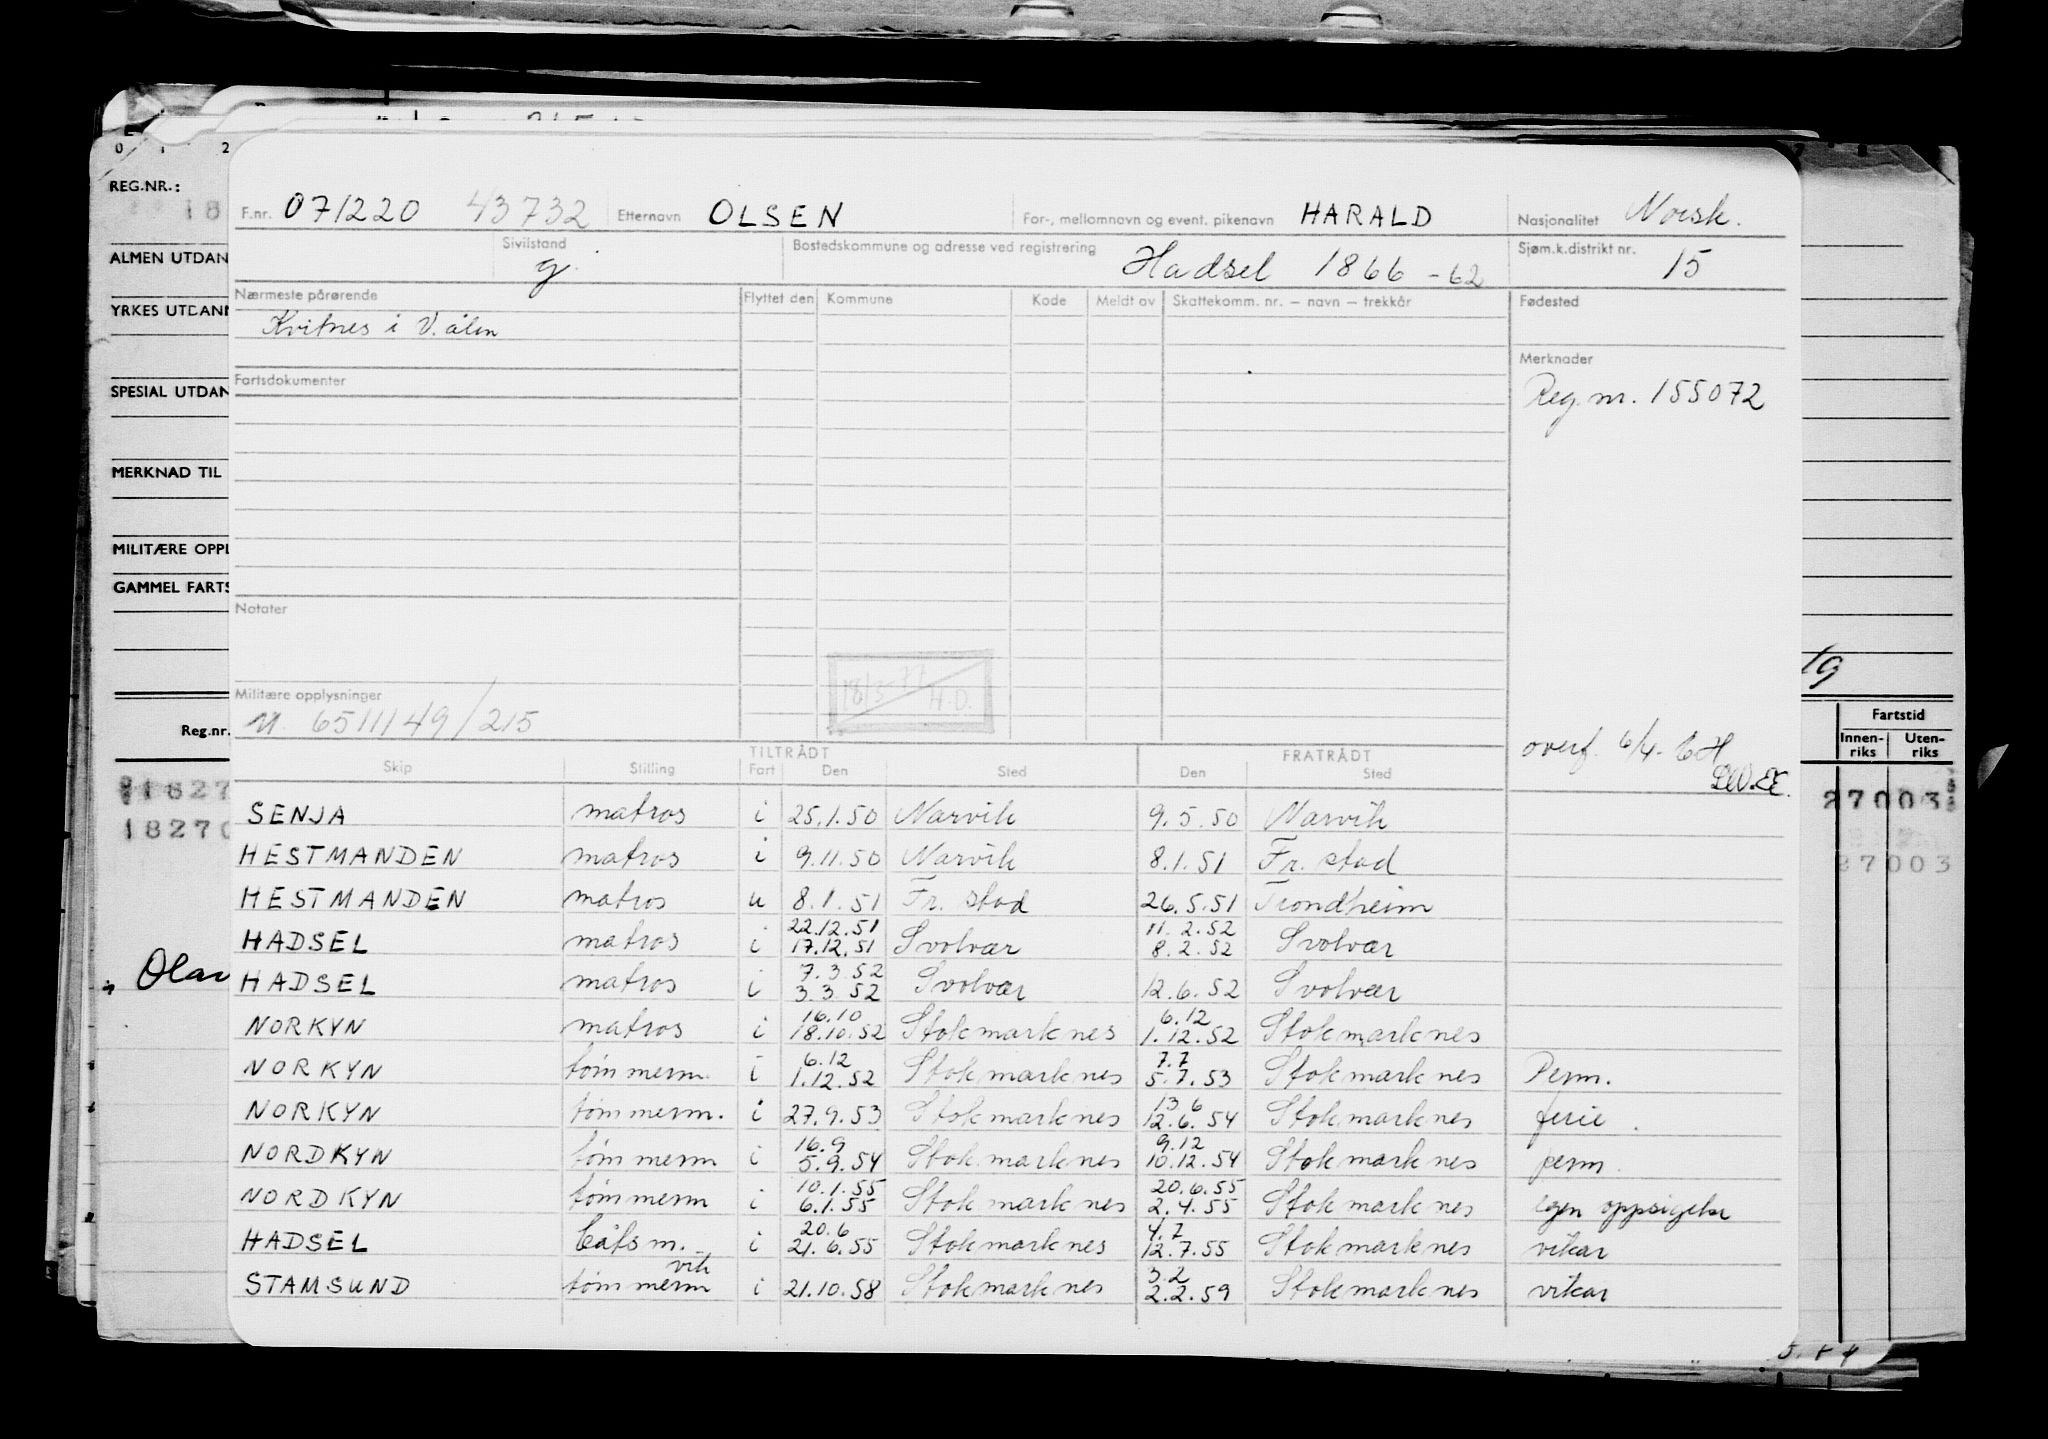 REG.NR.:
18
ALMEN UTDAN
YRKES UTDANN
SPESIAL UTDAN
MERKNAD TIL
MILITÆRE OPPL
GAMMEL FARTS
Reg.nr.
18270
Olav
F.nr. 071220 43732 Etternavn OLSEN For-, mellomnavn og event. pikenavn HARALD Nasjonalitet Norsk.
Sivilstand g. Bostedskommune og adresse ved registrering Hadsel 1866 - 62 Sjøm.k.distrikt nr. 15
Nærmeste pårørende Flyttet den Kommune Kode Meldt av Skattekomm. nr. – navn – trekkår Fødested
Kvitnes i V.ålen
Merknader
Fartsdokumenter
Reg.nr. 155072
Notater
18/3-77 H.D.
Militære opplysninger
M. 6511149/215
overf. 6/4-
TILTRÅDT FRATRÅDT
Skip Stilling Fart Den Sted Den Sted
SENJA matros i 25.1.50 Narvik 9.5.50 Narvik
HESTMANDEN matros i 9.11.50 Narvik 8.1.51 Fr. stad
HESTMANDEN matros u 8.1.51 Fr. stad 26.5.51 Trondheim
22.12.51 11.2.52
HADSEL matros i 17.12.51 Svolvær 8.2.52 Svolvær
7.3.52
HADSEL matros i 3.3.52 Svolvær 12.6.52 Svolvær
16.10 6.12
NORKYN matros i 18.10.52 Stokmarknes 1.12.52 Stokmarknes
6.12 7.7
NORKYN tømmerm. i 1.12.52 Stokmarknes 5.7.53 Stokmarknes Perm.
13.6
NORKYN tømmerm. i 27.9.53 Stokmarknes 12.6.54 Stokmarknes ferie.
16.9 9.12
NORDKYN tømmerm i 5.9.54 Stokmarknes 10.12.54 Stokmarknes perm.
10.1.55 20.6.55
NORDKYN tømmerm i 6.1.55 Stokmarknes 2.4.55 Stokmarknes egen oppsigelse
20.6 4.7
HADSEL båtsm. i 21.6.55 Stokmarknes 12.7.55 Stokmarknes vikar
vik 3.2
STAMSUND tømmerm i 21.10.58 Stokmarknes 2.2.59 Stokmarknes vikar
Fartstid
Innen- Uten-
riks riks
27003
27003